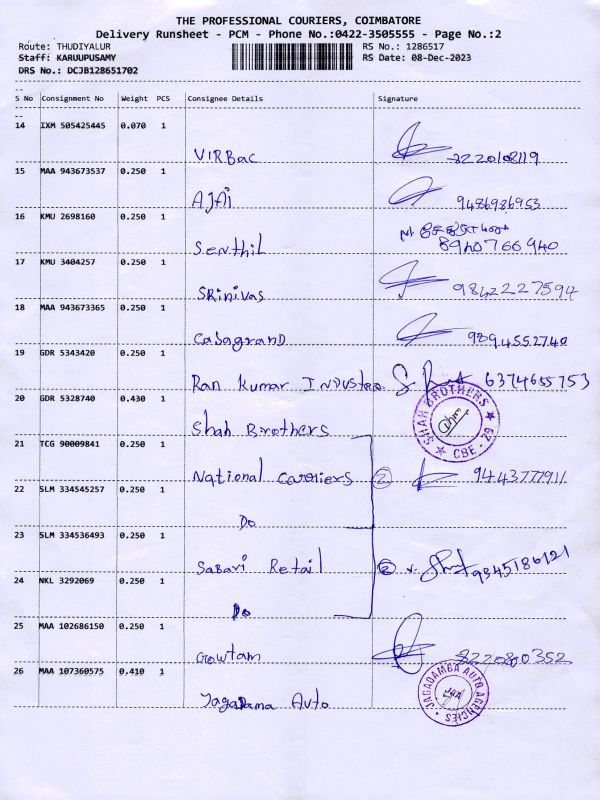 THE PROFESSIONAL COURIERS, COIMBATORE
Delivery Runsheet - PCM - Phone No.:0422-3505555 - Page No.:2
Route: THUDIYALUR RS No.: 1286517
Staff: KARUUPUSAMY RS Date: 08-Dec-2023
DRS No.: DCJB128651702
S No Consignment No Weight PCS Consignee Details Signature
14 IXM 505425445 0.070 1
VIRBac 8220108119
15 MAA 943673537 0.250 1
AJAI 9486986953
16 KMU 2698160 0.250 1
Senthil 8940766940
17 KMU 3404257 0.250 1
SRinivas 9842227594
18 MAA 943673365 0.250 1
Casagrand 9894552740
19 GDR 5343420 0.250 1
Ran Kumar Industries 6374655753
20 GDR 5328740 0.430 1
Shah Brothers SHAH BROTHERS CBE - 29
21 TCG 90009841 0.250 1
National carriers 2 9443777911
22 SLM 334545257 0.250 1
Do
23 SLM 334536493 0.250 1
Sabari Retail 2 9345186121
24 NKL 3292069 0.250 1
Do
25 MAA 102686150 0.250 1
Gowtam 8220800352
26 MAA 107360575 0.410 1
Jagadama Auto JAGADAMBA AUTO AGENCIES